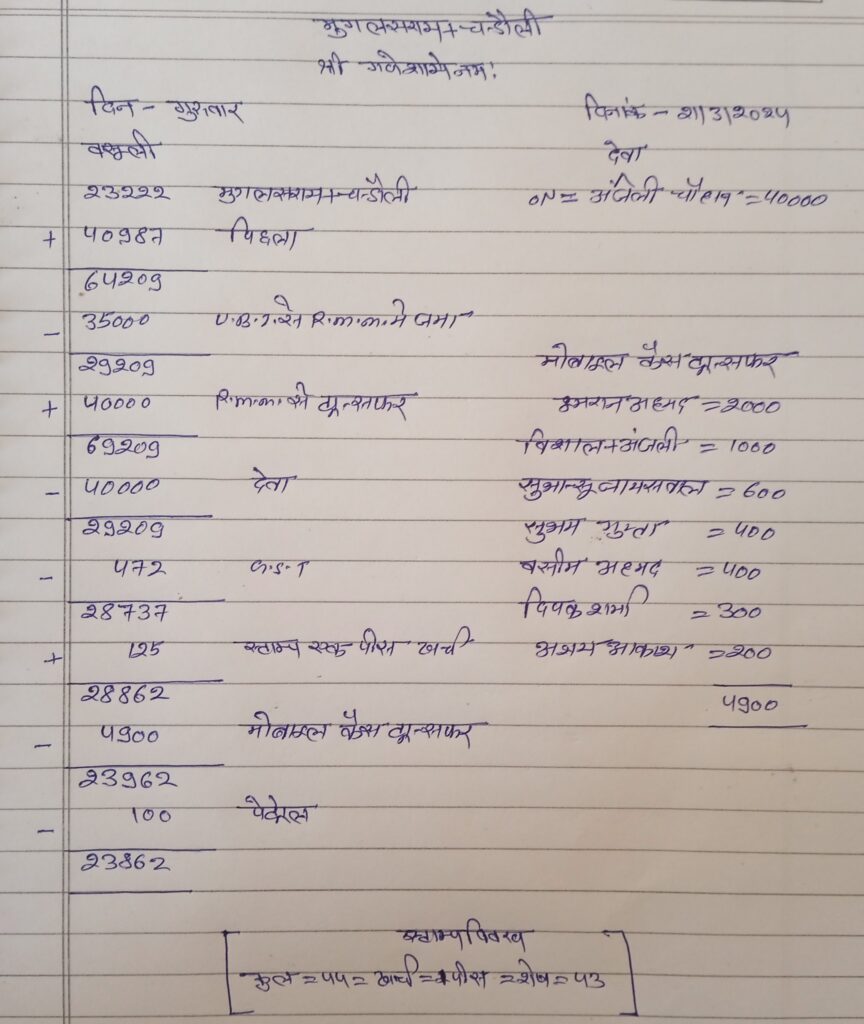 मुगलसराय+चन्दौली
श्री गणेशाय नमः
दिन - गुरुवार दिनांक - 21/3/2024
वसूली देवा
23222 मुगलसराय+चन्दौली ON = अंजली चौहान = 40000
+ 40987 पिछला
64209
- 35000 U.B.I. से R.m.m. मे जमा
29209 मोबाइल कैस ट्रान्सफर
+ 40000 R.m.m. से ट्रान्सफर इमरान अहमद = 2000
69209 विशाल+अंजली = 1000
- 40000 देवा सुभान्सू जायसवाल = 600
29209 सुभम गुप्ता = 400
- 472 G.S.T वसीम अहमद = 400
28737 दिपक शर्मा = 300
+ 125 स्टाम्प एक पीस खर्ची अभय आकाश = 200
28862 4900
- 4900 मोबाइल कैस ट्रान्सफर
23962
- 100 पेट्रोल
23862
स्टाम्प विवरण
कुल = 44 = खर्ची = 1 पीस = शेष = 43